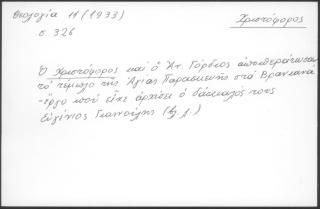 Θεολογία 11 (1933)
Χριστόφορος
σ. 326
Ὁ Χριστόφορος καὶ ὁ Ἀν. Γόρδιος ἀποπεράτωσαν
τὸ τέμπλο τῆς Ἁγίας Παρασκευῆς στὰ Βρανιανά
-ἔργο ποὺ εἶχε ἀρχίσει ὁ δάσκαλός τους
Εὐγένιος Γιαννούλης (βλ. λ.)